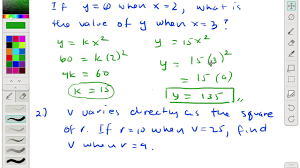 If y=60 when x=2, what is
the value of y when x=3?
y = kx²
60 = k(2)²
4k = 60
k = 15
y = 15x²
y = 15(3)²
= 15(9)
y = 135
2.) V varies directly as the square
of r. If r=10 when V=25, find
V when r=9.